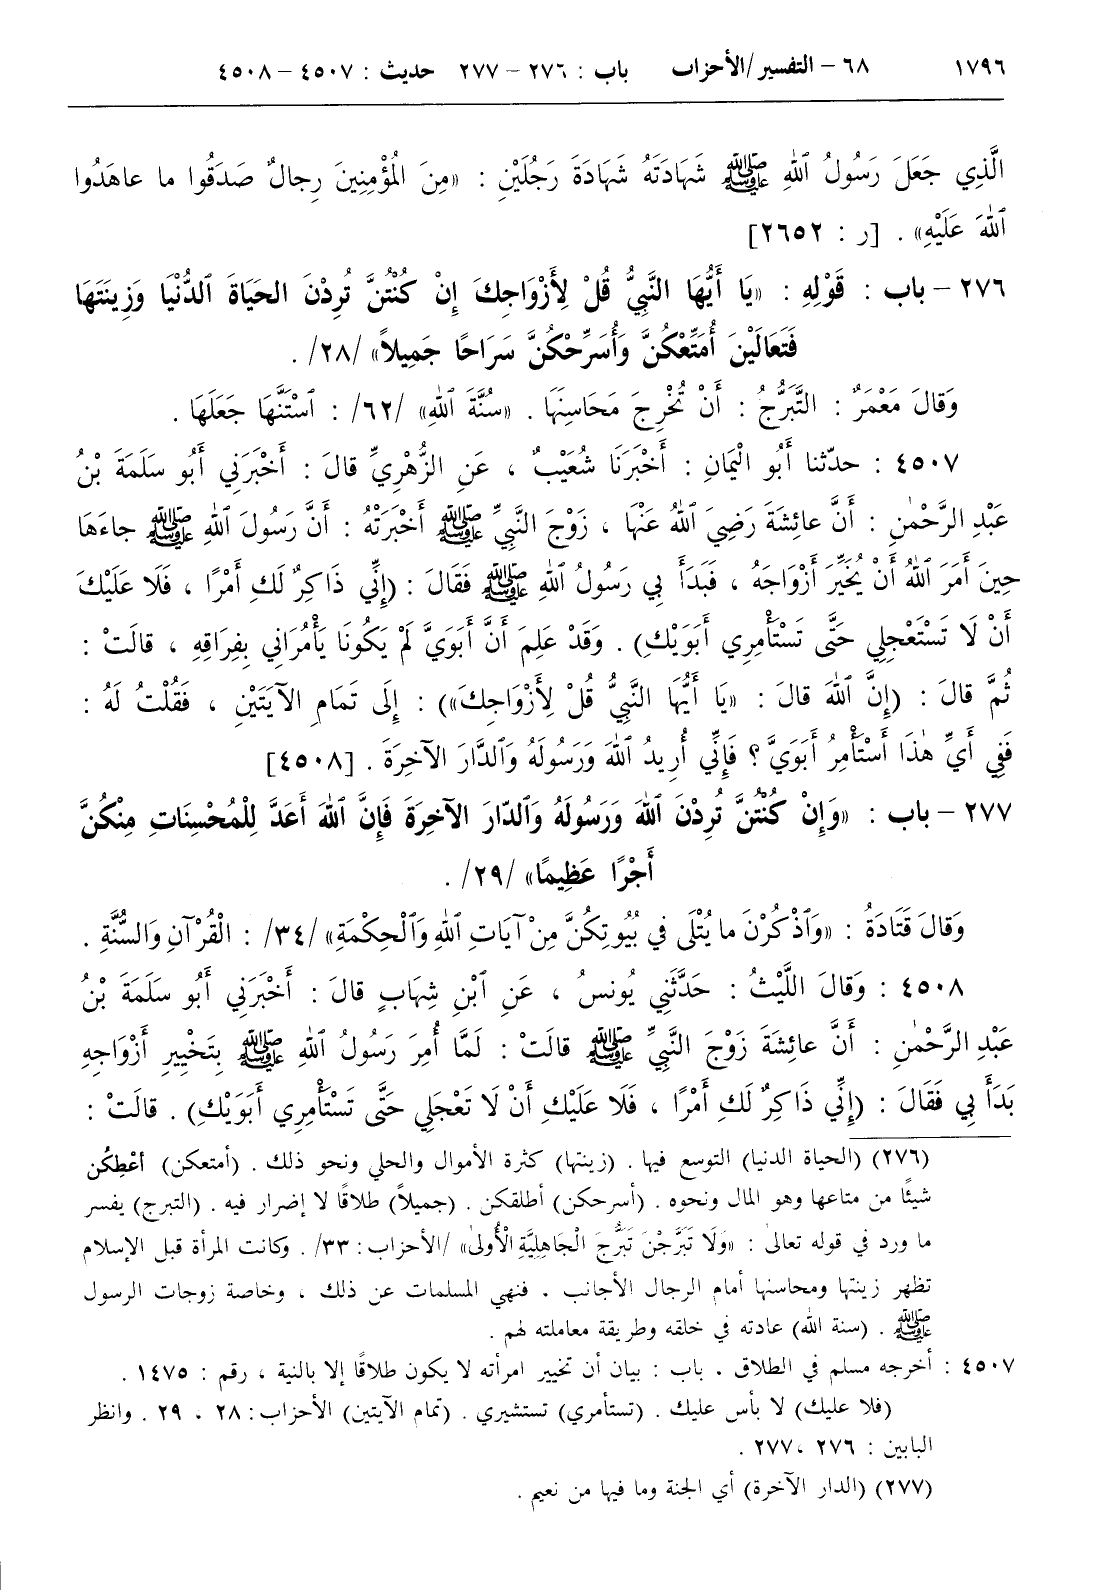 ١٧٩٦ ٦٨ – التفسير/الأحزاب باب : ٢٧٦ – ٢٧٧ حديث : ٤٥٠٧ – ٤٥٠٨
الَّذِي جَعَلَ رَسُولُ ٱللهِ ﷺ شَهَادَتَهُ شَهَادَةَ رَجُلَيْنِ : «مِنَ الْمُؤْمِنِينَ رِجالٌ صَدَقُوا ما عاهَدُوا
ٱللهَ عَلَيْهِ» . [ر : ٢٦٥٢]
٢٧٦ – باب : قَوْلِهِ : «يَا أَيُّهَا النَّبِيُّ قُلْ لِأَزْوَاجِكَ إِنْ كُنْتُنَّ تُرِدْنَ الحَيَاةَ ٱلدُّنْيَا وَزِينَتَهَا
فَتَعَالَيْنَ أُمَتِّعْكُنَّ وَأُسَرِّحْكُنَّ سَرَاحًا جَمِيلاً» /٢٨/ .
وَقالَ مَعْمَرٌ : التَّبَرُّجُ : أَنْ تُخْرِجَ مَحَاسِنَهَا . «سُنَّةَ ٱللهِ» /٦٢/ : ٱسْتَنَّهَا جَعَلَهَا .
٤٥٠٧ : حدّثنا أَبُو الْيَمَانِ : أَخْبَرَنَا شُعَيْبٌ ، عَنِ الزُّهْرِيِّ قالَ : أَخْبَرَنِي أَبُو سَلَمَةَ بْنُ
عَبْدِ الرَّحْمٰنِ : أَنَّ عائِشَةَ رَضِيَ ٱللهُ عَنْهَا ، زَوْجَ النَّبِيِّ ﷺ أَخْبَرَتْهُ : أَنَّ رَسُولَ ٱللهِ ﷺ جاءَهَا
حِينَ أَمَرَ ٱللهُ أَنْ يُخَيِّرَ أَزْوَاجَهُ ، فَبَدَأَ بِي رَسُولُ ٱللهِ ﷺ فَقَالَ : (إِنِّي ذَاكِرٌ لَكِ أَمْرًا ، فَلَا عَلَيْكَ
أَنْ لَا تَسْتَعْجِلِي حَتَّى تَسْتَأْمِرِي أَبَوَيْكِ) . وَقَدْ عَلِمَ أَنَّ أَبَوَيَّ لَمْ يَكُونَا يَأْمُرَانِي بِفِرَاقِهِ ، قالَتْ :
ثُمَّ قالَ : (إِنَّ ٱللهَ قالَ : «يَا أَيُّهَا النَّبِيُّ قُلْ لِأَزْوَاجِكَ») : إِلَى تَمَامِ الآيَتَيْنِ ، فَقُلْتُ لَهُ :
فَفِي أَيِّ هٰذَا أَسْتَأْمِرُ أَبَوَيَّ ؟ فَإِنِّي أُرِيدُ ٱللهَ وَرَسُولَهُ وَٱلدَّارَ الآخِرَةَ . [٤٥٠٨]
٢٧٧ – باب : «وَإِنْ كُنْتُنَّ تُرِدْنَ ٱللهَ وَرَسُولَهُ وَٱلدَّارَ الآخِرَةَ فَإِنَّ ٱللهَ أَعَدَّ لِلْمُحْسِنَاتِ مِنْكُنَّ
أَجْرًا عَظِيمًا» /٢٩/ .
وَقالَ قَتَادَةُ : «وَٱذْكُرْنَ ما يُتْلَى في بُيُوتِكُنَّ مِنْ آيَاتِ ٱللهِ وَٱلْحِكْمَةِ» /٣٤/ : الْقُرْآنِ وَالسُّنَّةِ .
٤٥٠٨ : وَقالَ اللَّيْثُ : حَدَّثَنِي يُونسُ ، عَنِ ٱبْنِ شِهَابٍ قالَ : أَخْبَرَنِي أَبُو سَلَمَةَ بْنُ
عَبْدِ الرَّحْمٰنِ : أَنَّ عائِشَةَ زَوْجَ النَّبِيِّ ﷺ قالَتْ : لَمَّا أُمِرَ رَسُولُ ٱللهِ ﷺ بِتَخْيِيرِ أَزْوَاجِهِ
بَدَأَ بِي فَقَالَ : (إِنِّي ذَاكِرٌ لَكِ أَمْرًا ، فَلَا عَلَيْكِ أَنْ لَا تَعْجَلِي حَتَّى تَسْتَأْمِرِي أَبَوَيْكِ) . قالَتْ :
(٢٧٦) (الحياة الدنيا) التوسع فيها . (زينتها) كثرة الأموال والحلي ونحو ذلك . (أمتعكن) أعطِكُن
شيئًا من متاعها وهو المال ونحوه . (أسرحكن) أطلقكن . (جميلاً) طلاقًا لا إضرار فيه . (التبرج) يفسر
ما ورد في قوله تعالىٰ : «وَلَا تَبَرَّجْنَ تَبَرُّجَ الْجَاهِلِيَّةِ الْأُولىٰ» /الأحزاب: ٣٣/ . وكانت المرأة قبل الإسلام
تظهر زينتها ومحاسنها أمام الرجال الأجانب . فنهي المسلمات عن ذلك ، وخاصة زوجات الرسول
ﷺ . (سنة الله) عادته في خلقه وطريقة معاملته لهم .
٤٥٠٧ : أخرجه مسلم في الطلاق . باب : بيان أن تخيير امرأته لا يكون طلاقًا إلا بالنية ، رقم : ١٤٧٥ .
(فلا عليك) لا بأس عليك . (تستأمري) تستشيري . (تمام الآيتين) الأحزاب: ٢٨ ، ٢٩ . وانظر
البابين : ٢٧٦ ،٢٧٧ .
(٢٧٧) (الدار الآخرة) أي الجنة وما فيها من نعيم .